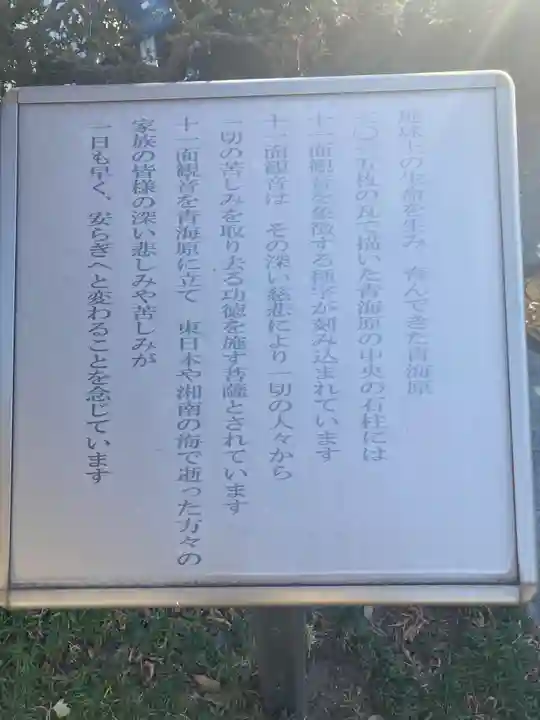 地球上の生命を生み 育んできた青海原
枚の瓦で描いた青海原の中央の石柱には
十一面観音を象徴する種字が刻み込まれています
十一面観音は その深い慈悲により一切の人々から
一切の苦しみを取り去る功徳を施す菩薩とされています
十一面観音を青海原に立て 東日本や湘南の海で逝った方々の
家族の皆様の深い悲しみや苦しみが
一日も早く、安らぎへと変わることを念じています